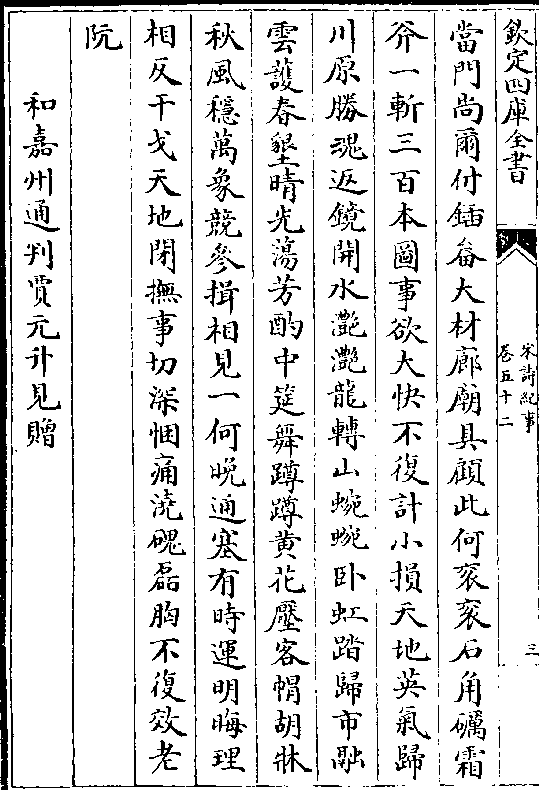 欽定四庫全書
宋詩紀事
卷五十二
三
當門尚爾付鍤畚大材廊廟具顧此何衮衮石角礪霜
斧一斬三百本圖事欲大快不復計小損天地英氣歸
川原勝魂返鏡開水灔灔龍轉山蜿蜿卧虹踏歸市融
雲護春墾晴光蕩芳酌中筵舞蹲蹲黄花壓客帽胡牀
秋風穩萬象競參揖相見一何晚通塞有時運明晦理
相反干戈天地閉撫事切深悃痛澆磈磊胸不復效老
阮
和嘉州通判賈元升見贈